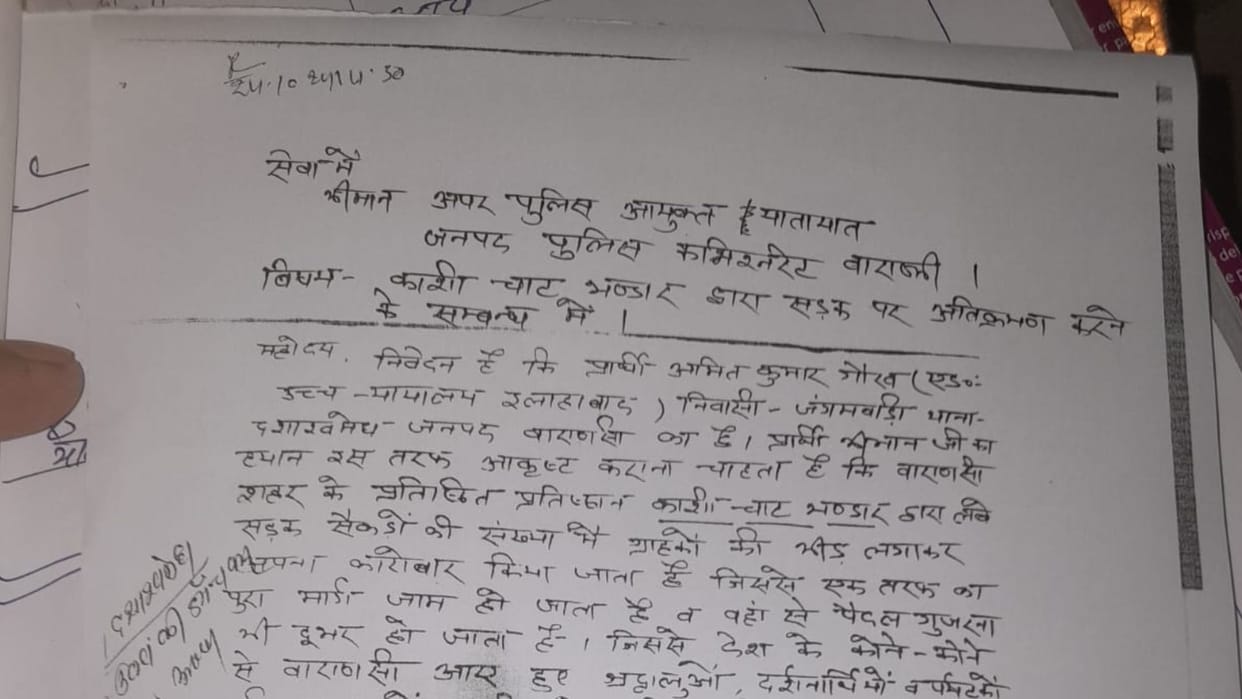 सेवा में
श्रीमान अपर पुलिस आयुक्त यातायात
जनपद पुलिस कमिश्नरेट वाराणसी ।
विषय- काशी चाट भण्डार द्वारा सड़क पर अतिक्रमण करने
के सम्बन्ध में ।
महोदय, निवेदन है कि प्रार्थी अमित कुमार मौर्य (एड०:
उच्च न्यायालय इलाहाबाद ) निवासी - जंगमबाड़ी थाना-
दशाश्वमेध जनपद वाराणसी का है। प्रार्थी श्रीमान जी का
ध्यान इस तरफ आकृष्ट कराना चाहता है कि वाराणसी
शहर के प्रतिष्ठित प्रतिष्ठान काशी चाट भण्डार द्वारा
सड़क सैकड़ों की संख्या में ग्राहकों की भीड़ लगाकर
अपना कारोबार किया जाता है जिससे एक तरफ का
पुरा मार्ग जाम हो जाता है व वहां से पैदल गुजरना
भी दूभर हो जाता है। जिससे देश के कोने-कोने
से वाराणसी आए हुए श्रद्धालुओं, दर्शनार्थियों व पर्यटकों